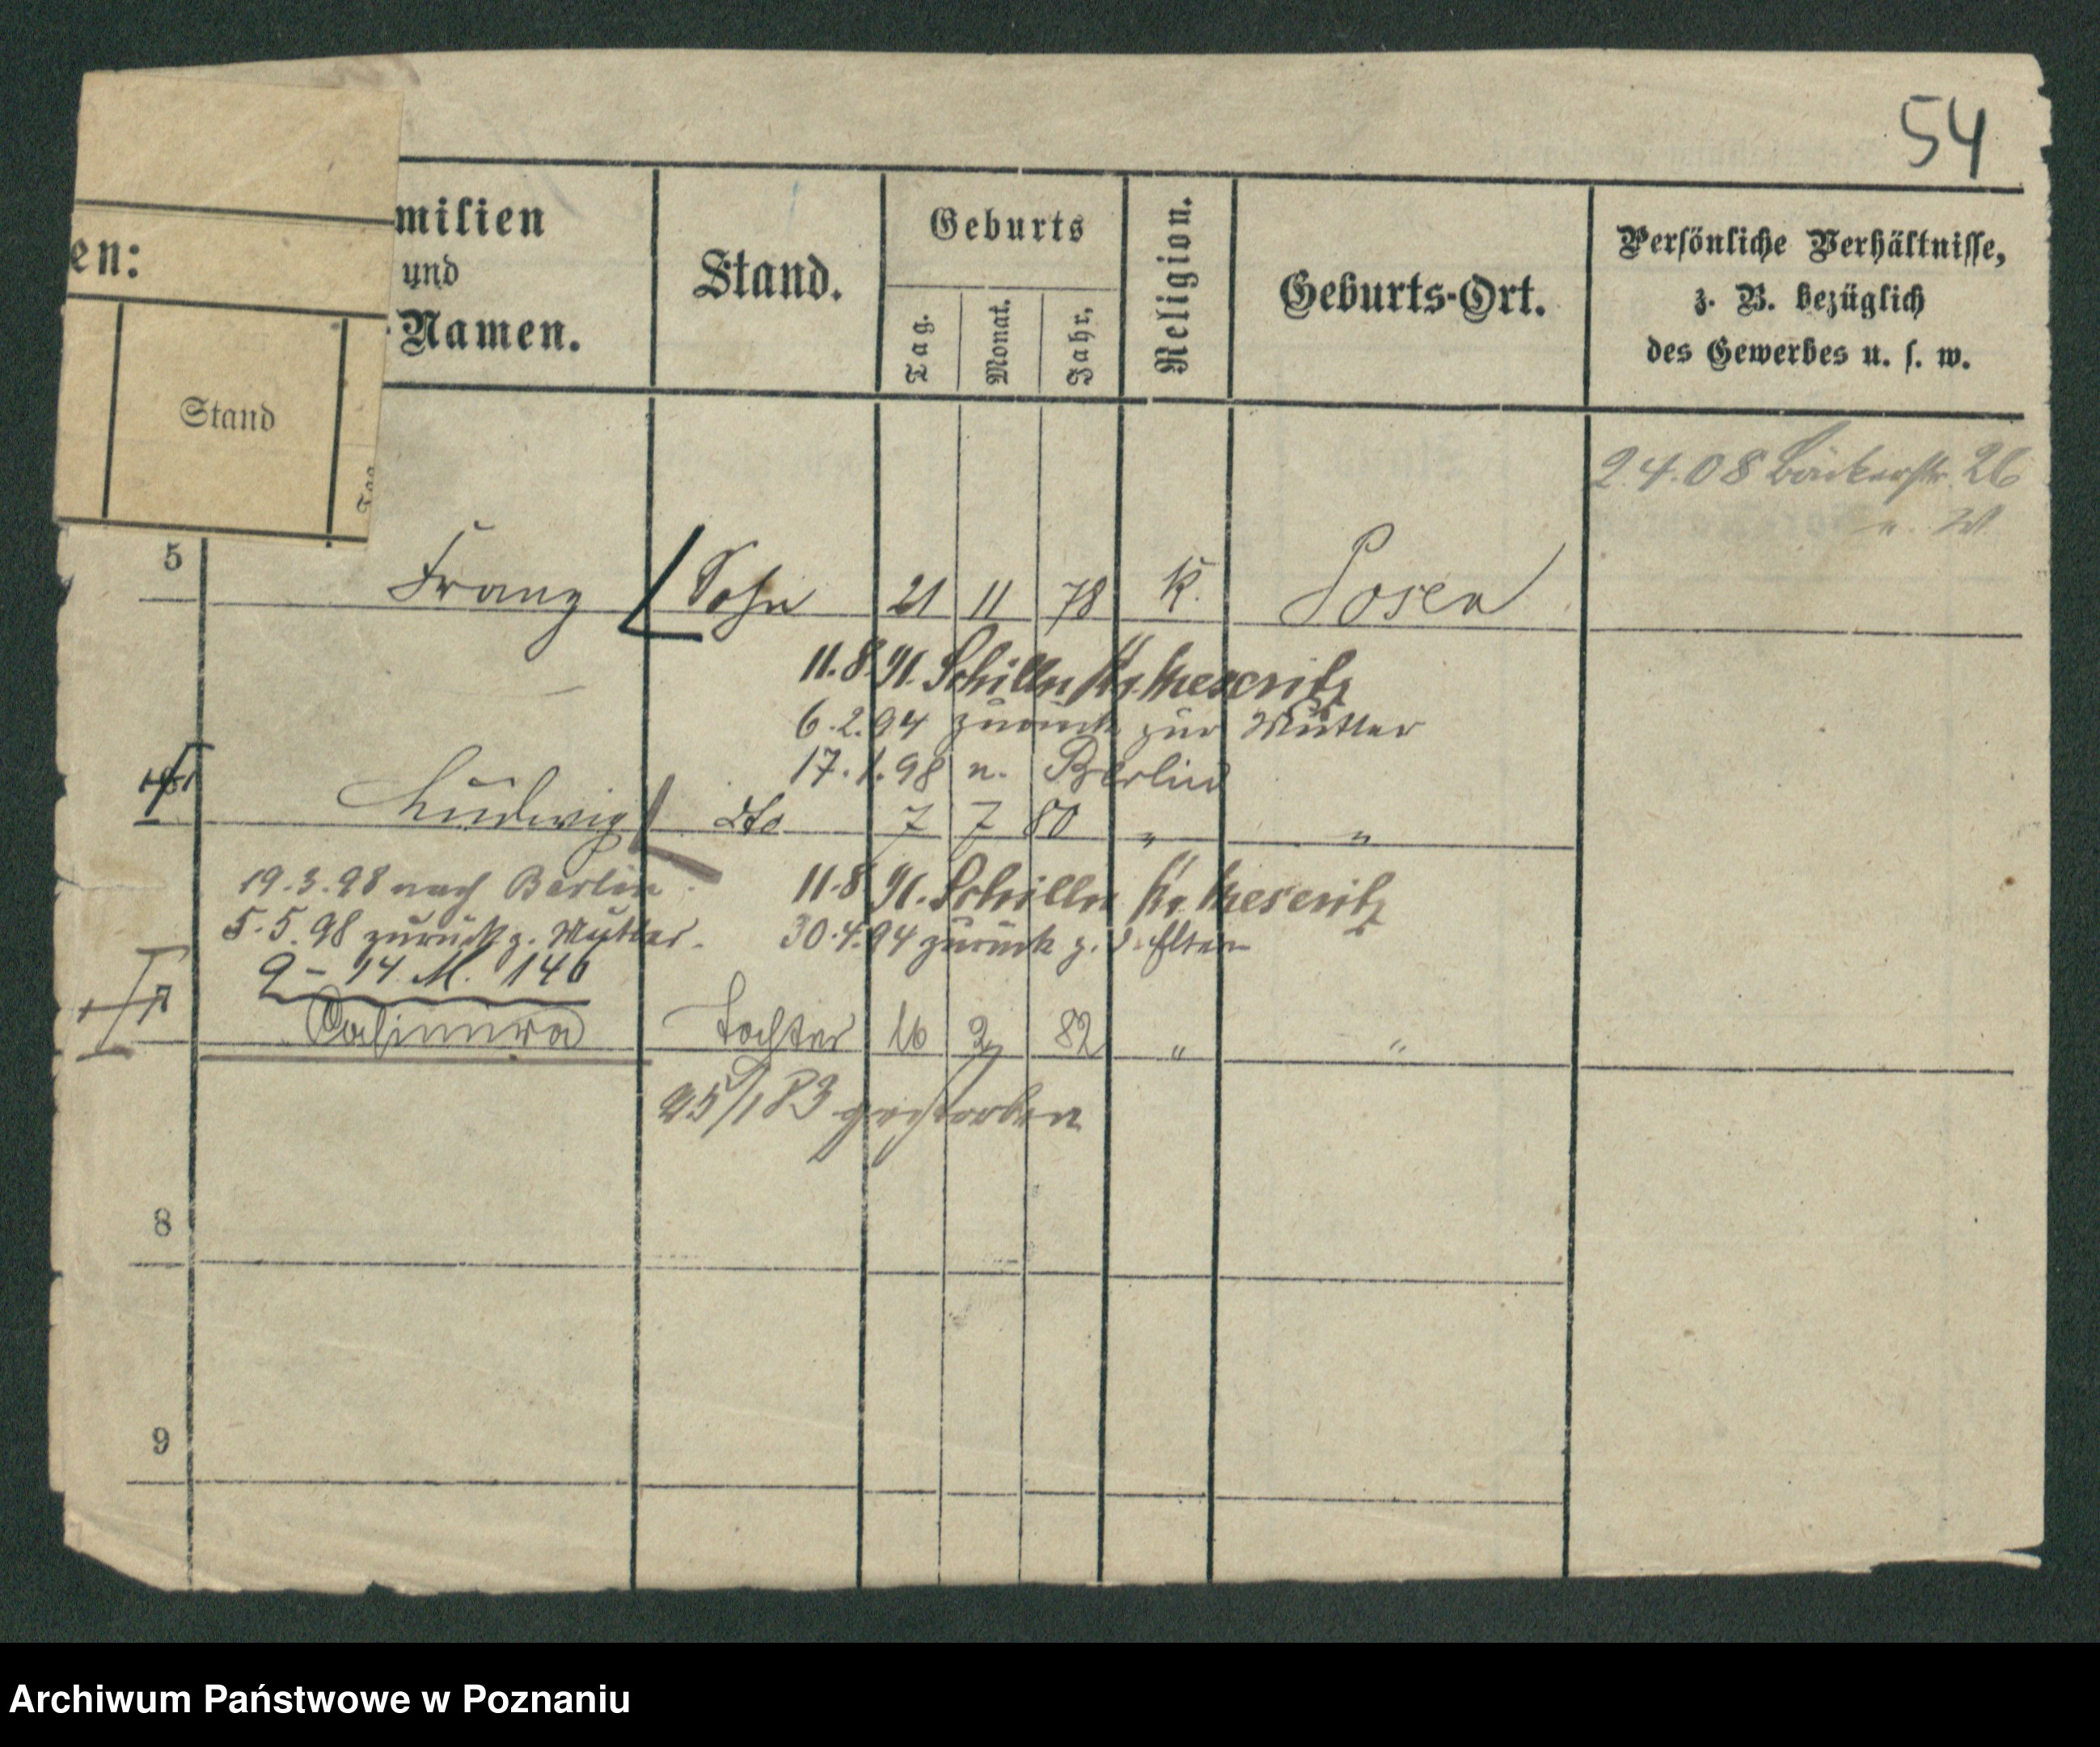 54
en:
Stand
Tag
milien
und
-Namen.
Stand.
Geburts
Tag.
Monat.
Jahr.
Religion.
Geburts-Ort.
Persönliche Verhältnisse,
z. B. bezüglich
des Gewerbes u. s. w.
2.4.08 Bäckerstr. 26
n. W
5 Franz Sohn 21 11 78 K. Posen
11.8.91. Schilln Kr. Meseritz
6.2.94 zurück zur Mutter
17.1.98 n. Berlin
Ludwig dto 7 7 80 " "
19.3.98 nach Berlin.
11.8.91. Schilln Kr. Meseritz
5.5.98 zurück z. Mutter.
30.4.94 zurück z. d. Eltern
9 - 14. M. 146
Casimira Tochter 16 2 82 " "
25/1 83 gestorben
8
9
Archiwum Państwowe w Poznaniu